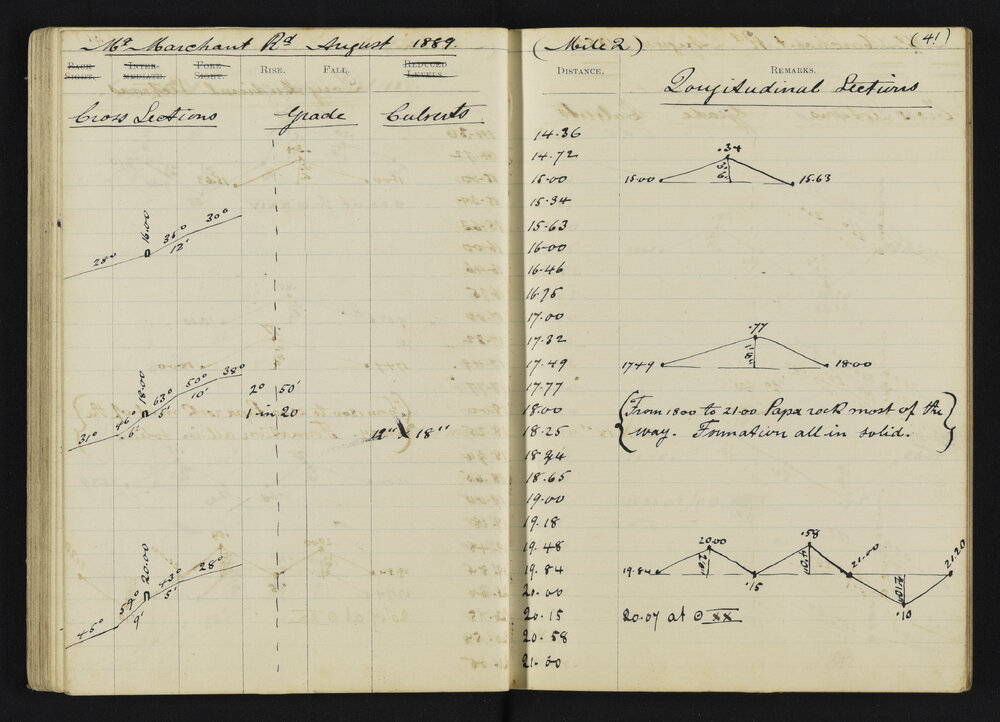 Mt Marchant Rd August 1889.
BACK SIGHT. INTER-MEDIATE. FORE SIGHT. RISE. FALL. REDUCED LEVELS.
Cross Sections Grade Culverts
28° 16.00 36° 12' 30°
31° 46° 6' 18.00 63° 5' 50° 10' 38°
2° 50'
1 in 20
12" x 18"
45° 59° 9' 20.00 43° 5' 28°
(Mile 2) (41)
DISTANCE. REMARKS.
Longitudinal Sections
14.36
14.72
15.00
15.34
15.63
16.00
16.46
16.75
17.00
17.32
17.49
17.77
18.00
18.25
18.34
18.65
19.00
19.18
19.48
19.84
20.00
20.15
20.58
21.00
15.00 .34 15.63
17.49 .77 18.00
{From 18.00 to 21.00 Papa rock most of the
way. Formation all in solid.}
19.84 20.00 .15 .58 21.00 .10 21.20
20.07 at ⊙ XX